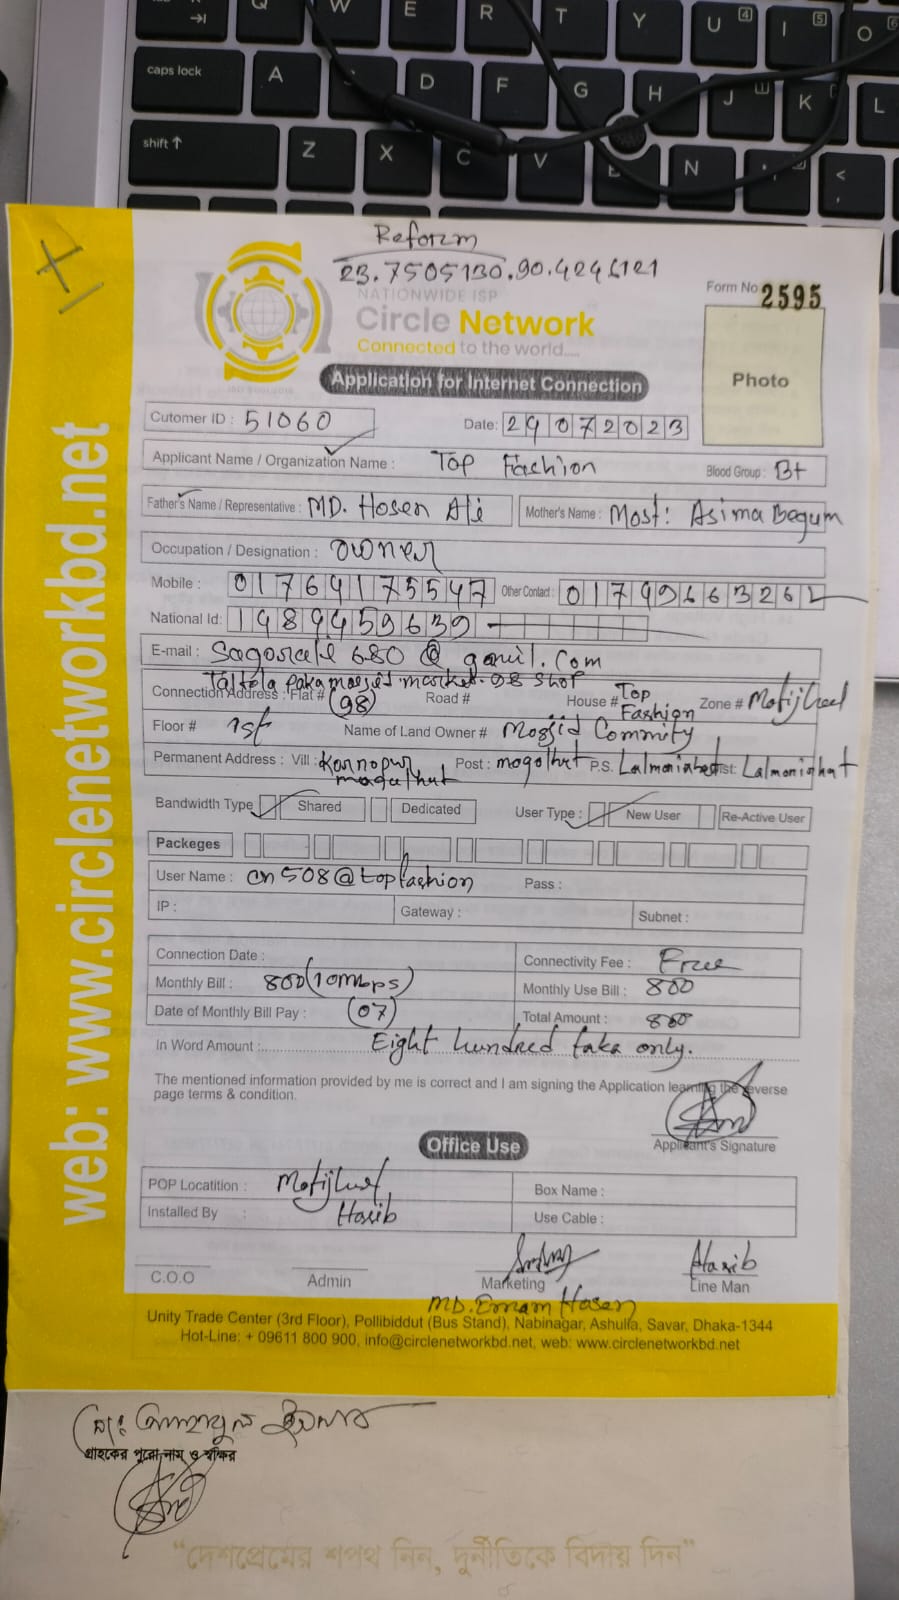 Reform
23.7505130.90.4246121
Form No 2595
NATIONWIDE ISP
Circle Network
Connected to the world.....
Photo
Application for Internet Connection
Cutomer ID : 51060
Date: 29072023
Applicant Name / Organization Name : Top Fashion
Blood Group : B+
Father's Name / Representative : MD. Hosen Ali
Mother's Name : Most: Asima Begum
Occupation / Designation : owner
Mobile : 01764175547 Other Contact : 01749663262
National Id: 1489459639
E-mail : Sagorali680@gmail.com
Taltola paka masjid market. 98 shop
Connection Address : Flat # (98) Road # House # Top Fashion Zone # Motijheel
Floor # 1st Name of Land Owner # Mosjid Commity
Permanent Address : Vill : Karnopur mogolhut Post : mogolhut P.S. Lalmonirhat Dist: Lalmonirhat
Bandwidth Type Shared Dedicated User Type : New User Re-Active User
Packeges
User Name : cn508@topfashion Pass :
IP : Gateway : Subnet :
Connection Date : Connectivity Fee : Free
Monthly Bill : 800 (10mbps) Monthly Use Bill : 800
Date of Monthly Bill Pay : (07) Total Amount : 800
In Word Amount : Eight hundred taka only.
The mentioned information provided by me is correct and I am signing the Application learning the reverse
page terms & condition.
Applicant's Signature
Office Use
POP Locatition : Motijheel Box Name :
Installed By : Hasib Use Cable :
Hasib
C.O.O Admin Marketing Line Man
MD. Emam Hosen
Unity Trade Center (3rd Floor), Pollibiddut (Bus Stand), Nabinagar, Ashulia, Savar, Dhaka-1344
Hot-Line: + 09611 800 900, info@circlenetworkbd.net, web: www.circlenetworkbd.net
web: www.circlenetworkbd.net
গ্রাহকের পুরো নাম ও স্বাক্ষর
“দেশপ্রেমের শপথ নিন, দুর্নীতিকে বিদায় দিন”
caps lock
shift
Q W E R T Y U I O
A D F G H J K L
Z X C V N